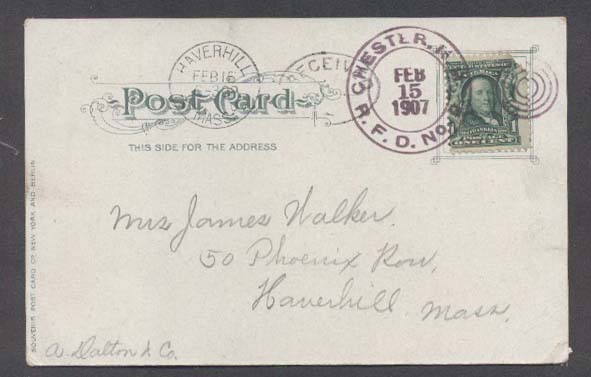 HAVERHILL
FEB 15
MASS.
RECEIV
CHESTER, N
FEB
15
1907
R. F. D. No.
Post Card
THIS SIDE FOR THE ADDRESS
POSTAGE
ONE CENT
Mrs James Walker.
50 Phoenix Row,
Haverhill Mass.
A. Dalton & Co.
SOUVENIR POST CARD CO. NEW YORK AND BERLIN